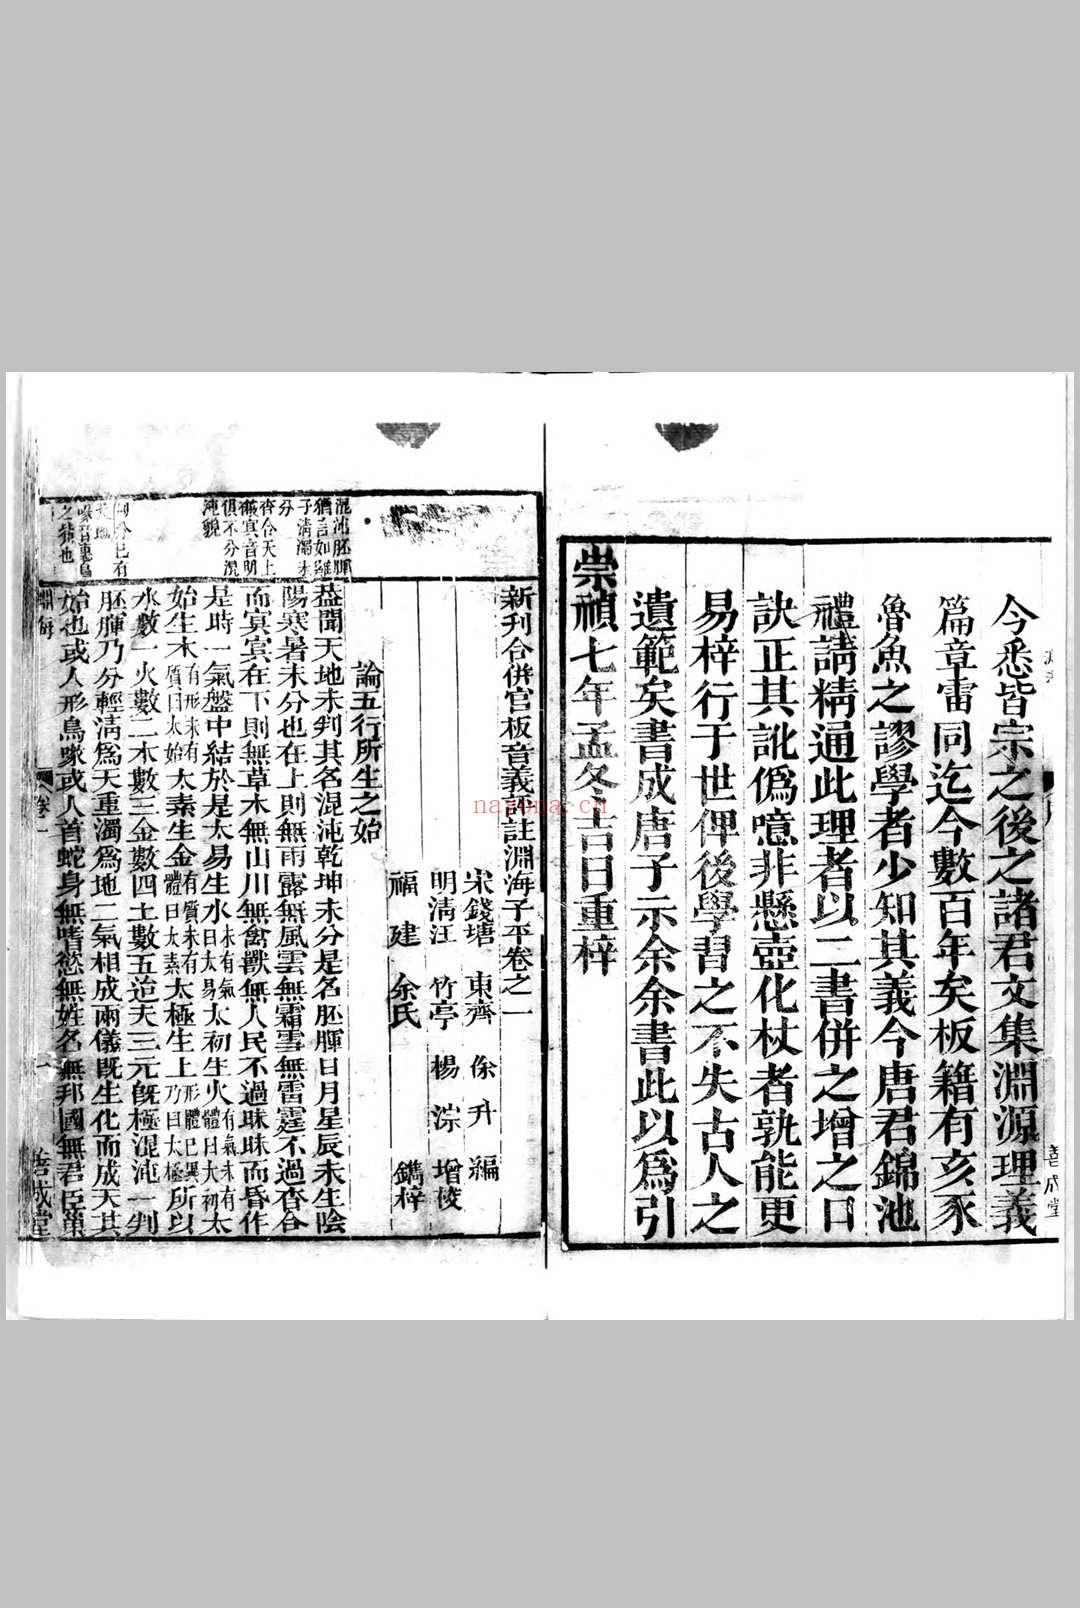 今悉皆宗之後之諸君文集淵源理義
篇章雷同迄今數百年矣板籍有亥豕
魯魚之謬學者少知其義今唐君錦池
禮請精通此理者以二書併之增之口
訣正其訛僞噫非懸壺化杖者孰能更
易梓行于世俾後學習之不失古人之
遺範矣書成唐子示余余書此以爲引
崇禎七年孟冬吉日重梓
善成堂
新刊合併官板音義評註淵海子平卷之一
宋錢塘 東齊 徐升 編
明清江 竹亭 楊淙 增校
福建 余氏 鐫梓
論五行所生之始
混沌胚腪
猶言如雞
子清濁未
分
杳合天上
蓋冥音明
俱不分混
沌貌
葢聞天地未判其名混沌乾坤未分是名胚腪日月星辰未生陰
陽寒暑未分也在上則無雨露無風雲無霜雪無雷霆不過杳合
而冥冥在下則無草木無山川無禽獸無人民不過昧昧而昏作
是時一氣盤中結於是太易生水未有氣曰太易太初生火有氣未有體曰太初太
始生木有形未有質曰太始太素生金有質未有體曰太素太極生土形體已具乃曰太極所以
水數一火數二木數三金數四土數五迨夫三元旣極混沌一判
胚腪乃分輕淸爲天重濁爲地二氣相成兩儀旣生化而成天其
始也或人形鳥喙或人首蛇身無嗜慾無姓名無邦國無君臣巢
淵海
卷一
一
善成堂
nayona.cn